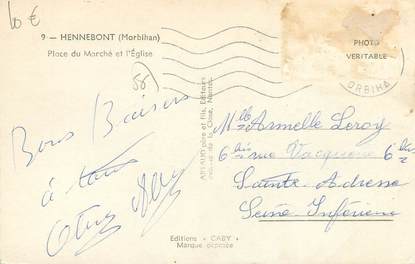 10 €
9 — HENNEBONT (Morbihan)
Place du Marché et l'Église
58
PHOTO
VERITABLE
ORBIHA
Bons Baisers
à tous
ARTAUD père et fils, Editeurs
Nantes
Mlle Armelle Leroy
6 bis rue Vacquerie 6 bis
Sainte-Adresse
Seine Inférieure
Editions "CABY"
Marque déposée